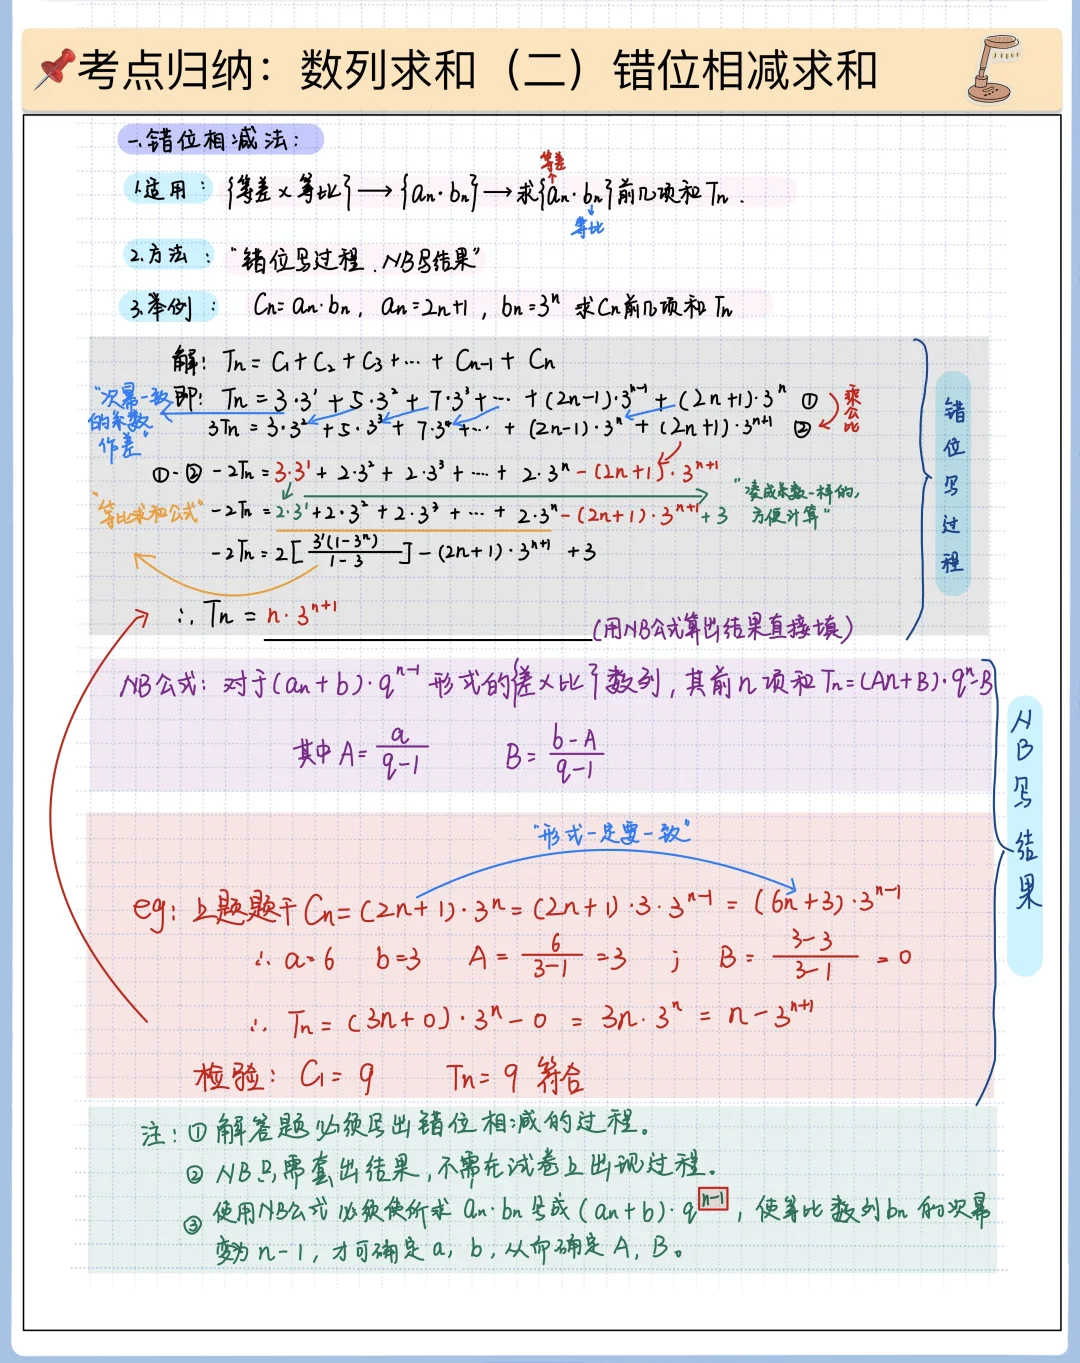 考点归纳：数列求和（二）错位相减求和
一.错位相减法：
等差
1.适用：{等差×等比}→{an·bn}→求{an·bn}前几项和Tn.
等比
2.方法："错位写过程.NB写结果"
3.举例：Cn=an·bn, an=2n+1, bn=3^n 求Cn前几项和Tn
解：Tn=C1+C2+C3+…+Cn-1+Cn
即：Tn=3·3^1+5·3^2+7·3^3+…+(2n-1)·3^n-1+(2n+1)·3^n ①
乘公比
"次幂一致的系数作差"
3Tn=3·3^2+5·3^3+7·3^4+…+(2n-1)·3^n+(2n+1)·3^n+1 ②
①-② -2Tn=3·3^1+2·3^2+2·3^3+…+2·3^n-(2n+1)·3^n+1
"凑成系数一样的,方便计算"
"等比求和公式"
-2Tn=2·3^1+2·3^2+2·3^3+…+2·3^n-(2n+1)·3^n+1+3
-2Tn=2[3^1(1-3^n)/1-3]-(2n+1)·3^n+1+3
∴Tn=n·3^n+1 (用NB公式算出结果直接填)
错位写过程
NB公式：对于(an+b)·q^n-1形式的{差×比}数列,其前n项和Tn=(An+B)·q^n-B
其中A=a/q-1 B=b-A/q-1
NB写结果
"形式一定要一致"
eg：上题题干Cn=(2n+1)·3^n=(2n+1)·3·3^n-1=(6n+3)·3^n-1
∴a=6 b=3 A=6/3-1=3 ; B=3-3/3-1=0
∴Tn=(3n+0)·3^n-0=3n·3^n=n-3^n+1
检验：C1=9 Tn=9 符合
注：①解答题必须写出错位相减的过程。
②NB只需套出结果,不需在试卷上出现过程。
③使用NB公式必须使所求an·bn写成(an+b)·q^n-1,使等比数列bn的次幂
变为n-1,才可确定a,b,从而确定A,B。